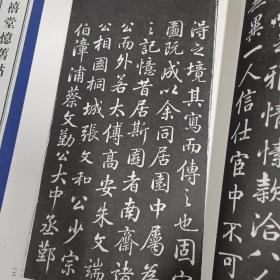 非情款洽
異一人信仕宦中不可
得之境其寫而傳之也固
圖既成以余同居園中屬為
之記憶昔居斯園者南齋諸
公而外若太傅高安朱文端
公相國桐城張文和公少宗
伯漳浦蔡文勤公大中丞鄞
禧堂憶舊帖